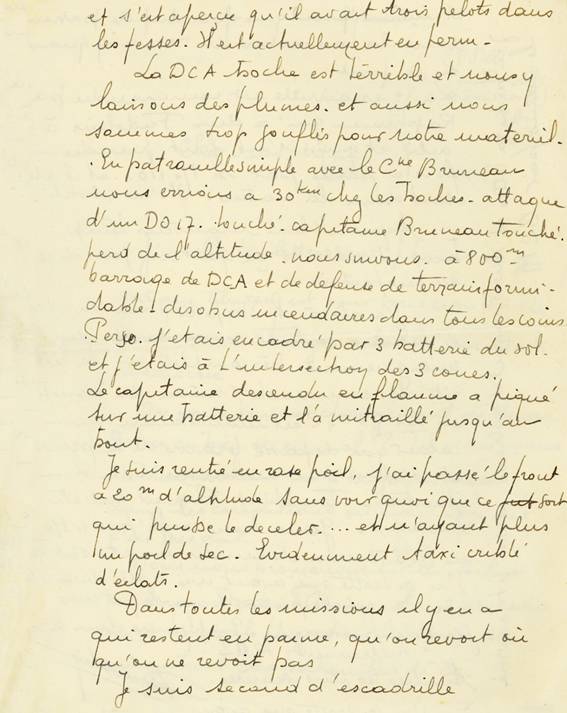 et s'est aperçu qu'il avait trois pelots dans
les fesses. Il est actuellement en perm -
La DCA boche est terrible et nous y
laissons des plumes. et aussi nous
sommes trop gonflés pour notre materiel.
. En patrouille simple avec le Cne Bruneau
nous errions a 30km chez les boches - attaque
d'un DO 17. touché. capitaine Bruneau touché.
perd de l'altitude. nous suivons. à 800m
barrage de DCA et de defense de terrain formi-
dable - des obus incendiaires dans tous les coins
. Perso. j'étais encadré par 3 batterie du sol.
et j'étais à l'intersection des 3 cones.
Le capitaine descendu en flamme a piqué
sur une batterie et l'a mitraillé jusqu'au
bout.
Je suis rentré en rase poil, j'ai passé le front
à 20m d'altitude sans voir quoi que ce fut soit
qui puisse le deceler. ... et n'ayant plus
un poil de sec. Evidemment taxi criblé
d'eclats.
Dans toutes les missions il y en a
qui restent en panne, qu'on revoit où
qu'on ne revoit pas
Je suis second d'escadrille